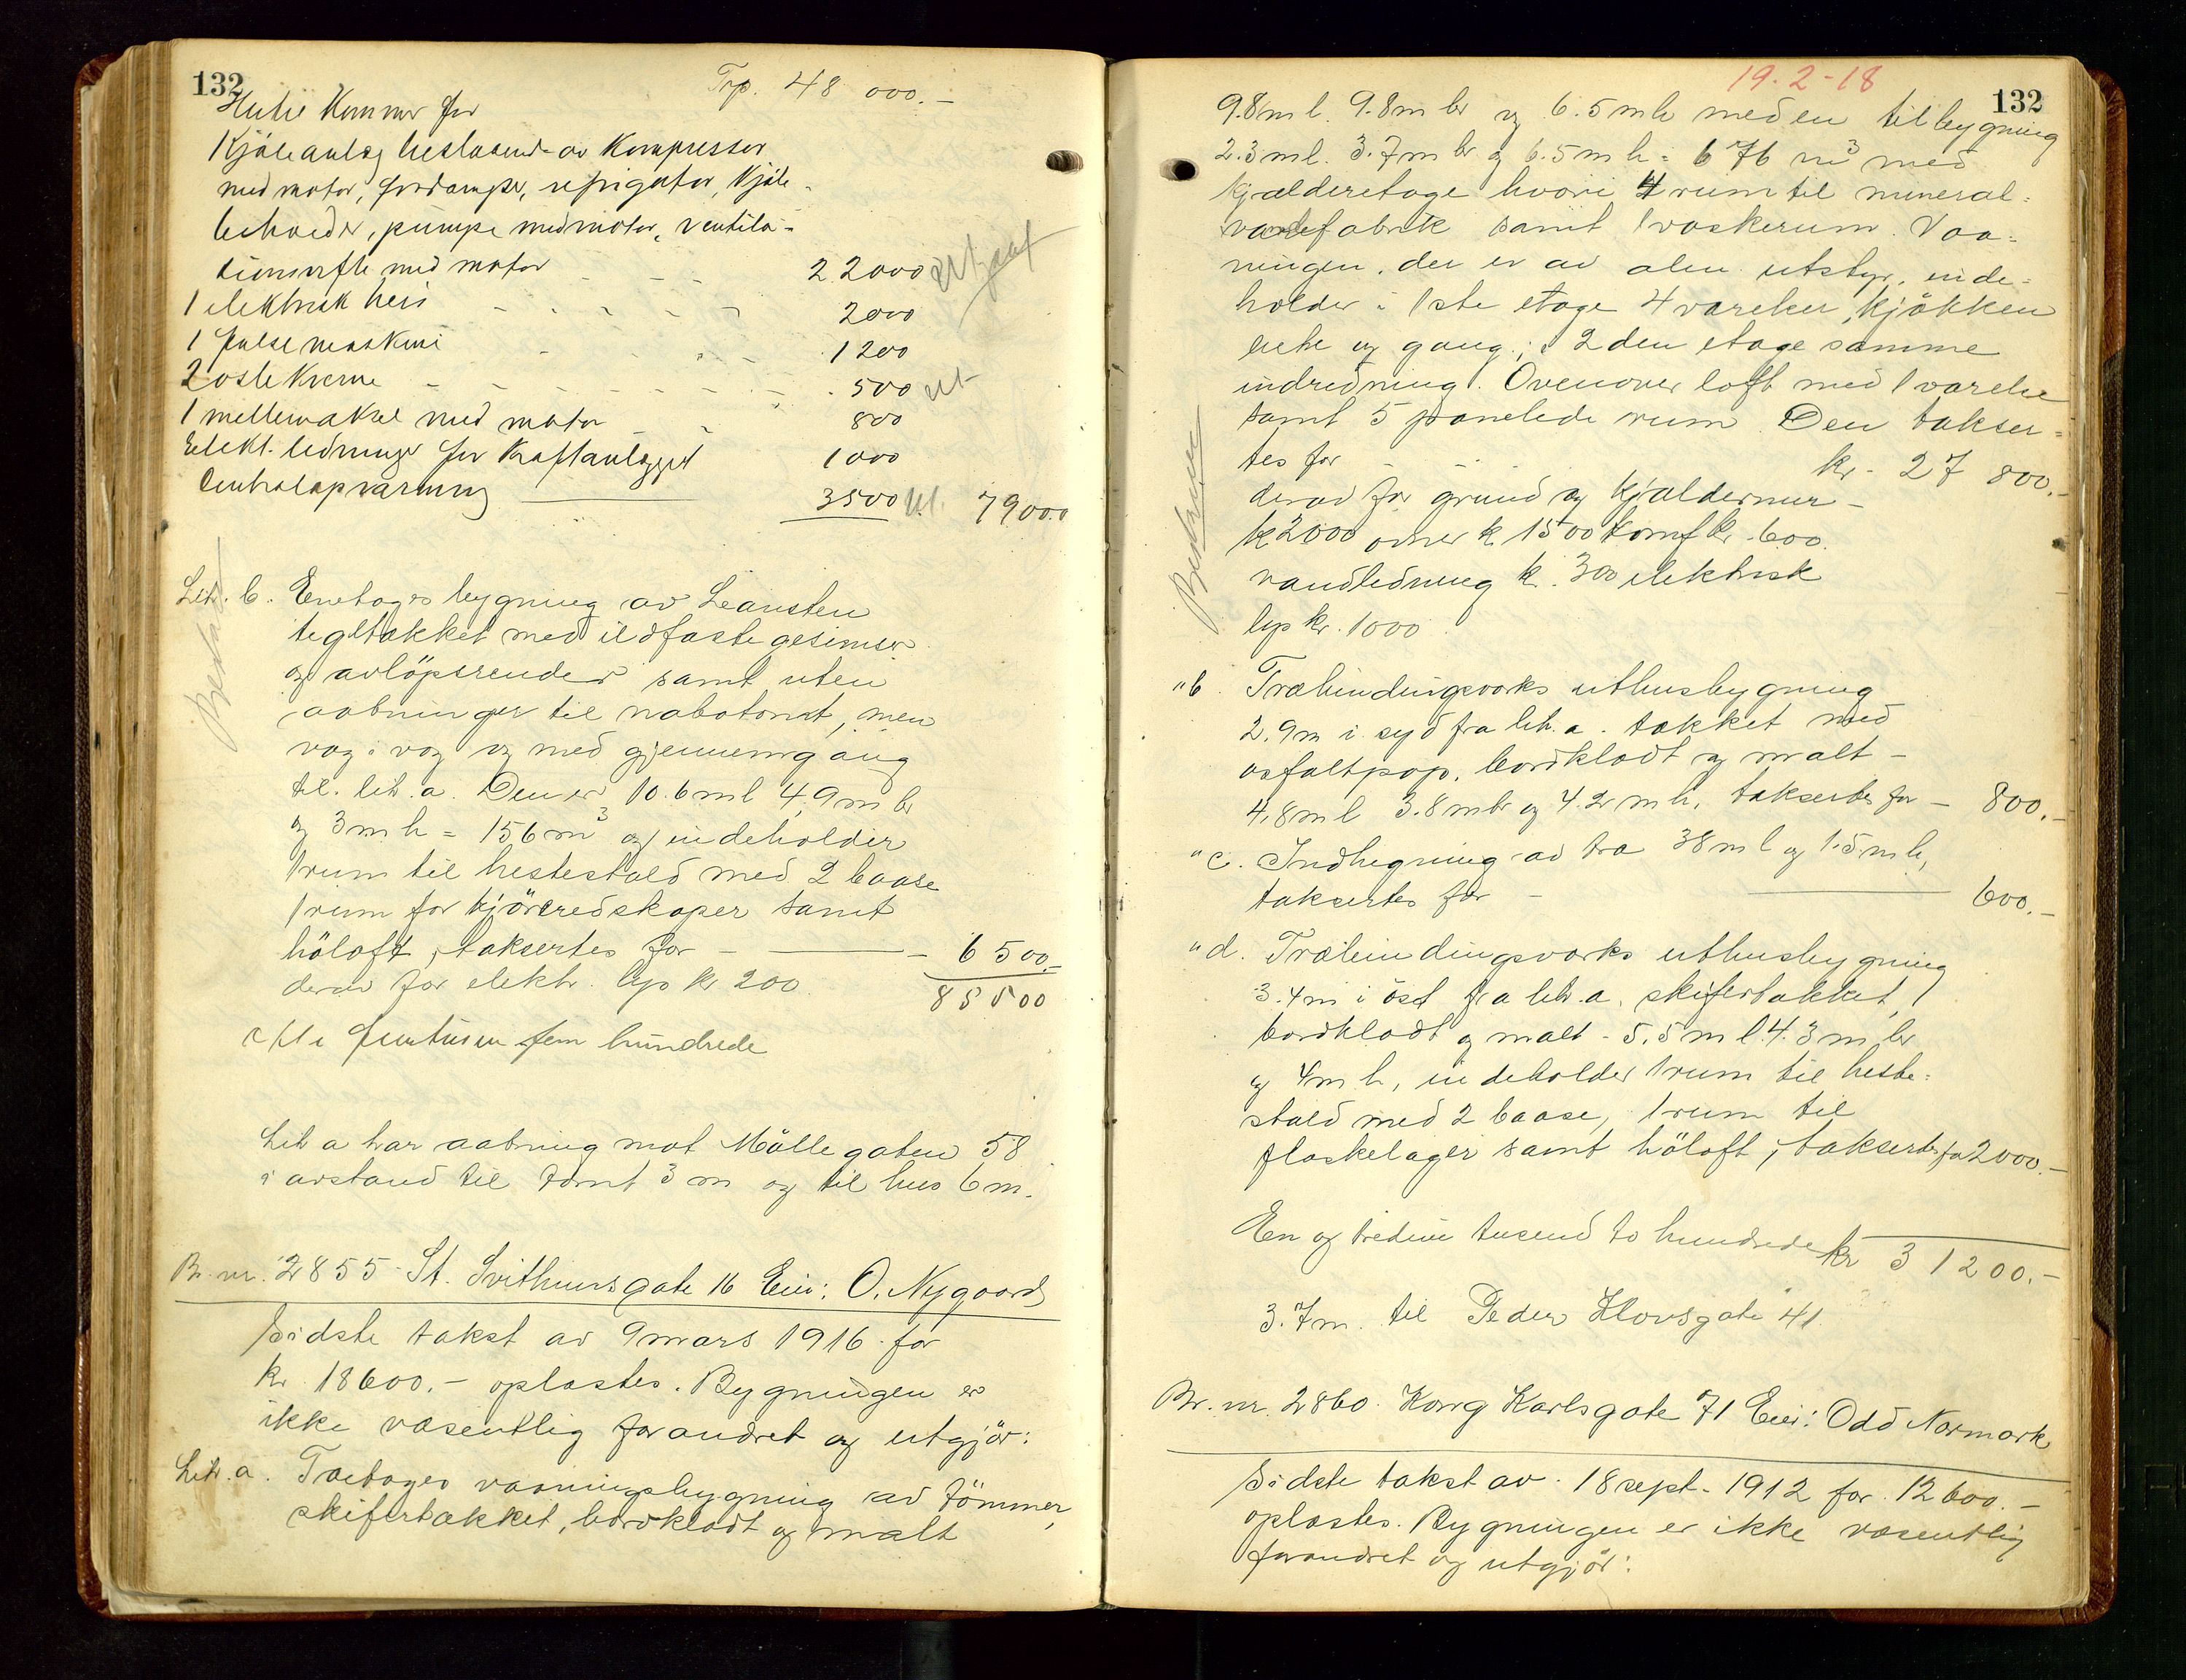 132
Trp. 48 000.-
Kjøleanlæg bestaaende av Kompressor
med motor, fordamper, refrigator, Kjøle-
beholder, pumpe med motor, ventila-
tionsvifte med motor 22000
1 elektrisk heis 2000
1 pølsemaskine 1200
2 oste Kverne 500 ut
1 mellemaksel med motor 800
Elekt. ledninger for Kraftanlægget 1000
Centralopvarming 3500 ut. 79000
Litr. b. Enetages bygning av Leansten
tegltækket med ildfaste gesimser
og avløpsrender samt uten
aabninger til nabotomt, men
væg i væg og med gjennemgang
til litr. a. Den er 10.6 m l 4,9 m br
og 3 m h = 156 m³ og indeholder
1 rum til hestestald med 2 baase
1 rum for kjøreredskaper samt
höloft, taksertes for - 6 500.-
derav for elektr. lys kr 200.
85 500
fem hundrede
Litr a har aabning mot Möllegaten 58
i avstand til tomt 3 m og til hus 6 m.
Br. nr. 2855 St. Svithunsgate 16 Eier: O. Nygaard
Sidste takst av 9 mars 1916 for
kr. 18600.- oplæstes. Bygningen er
ikke væsentlig forandret og utgjör:
Litr. a. Toetages vaaningsbygning av tömmer,
skifertækket, bordklædt og malt
19.2-18
132
9.8 m l. 9.8 m br og 6.5 m h med en tilbygning
2.3 m l. 3.7 m br og 6.5 m h = 676 m³ med
kjælderetage hvori 4 rum til mineral-
vandfabrik samt 1 vaskerum. Vaa-
ningen, der er av alm. utstyr, inde-
holder i 1ste etage 4 værelser, kjökken
entre og gang; i 2den etage samme
indredning. Ovenover loft med 1 værelse
samt 5 panelede rum. Den takser-
tes for kr. 27 800.-
derav for grund og kjældermur -
kr 2000 ovner kr 1500 komf kr. 600.
vandledning kr. 300 elektrisk
lys kr. 1000
" b. Træbindingsværks uthusbygning
2.9 m i syd fra litr. a. tækket med
asfaltpap, bordklædt og malt -
4.8 m l 3.8 m br og 4.2 m h, taksertes for - 800.-
" c. Indhegning av træ 38 m l og 1.5 m h,
taksertes for - 600.-
" d. Træbindingsværks uthusbygning
3.4 m i öst fra litr. a, skifertækket,
bordklædt og malt - 5.5 m l 4.3 m br
og 4 m h, indeholder 1 rum til heste-
stald med 2 baase, 1 rum til
flaskelager samt höloft; taksertes for 2000.-
En og tredive tusend to hundrede kr 31200.-
3.7 m. til Peder Klovsgate 41.
Br. nr. 2860. Kong Karlsgate 71 Eier: Odd Normark
Sidste takst av 18 sept. 1912 for 12600.-
oplæstes. Bygningen er ikke væsentlig
forandret og utgjör: